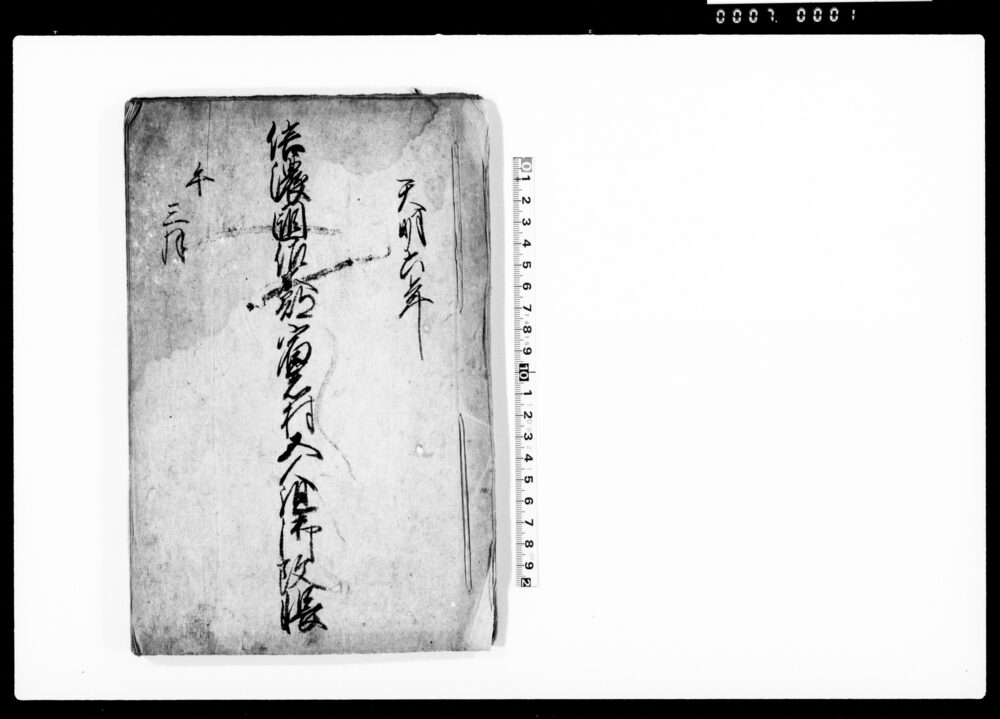 0007. 0001
天明六年
信濃國佐久郡村五人組御改帳
午
三月
0 1 2 3 4 5 6 7 8 9 10 1 2 3 4 5 6 7 8 9 2